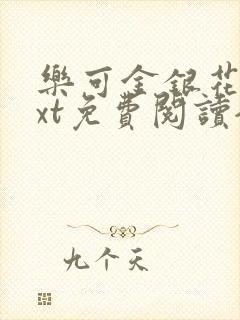 樂可金銀花
xt免費閱讀
九个天